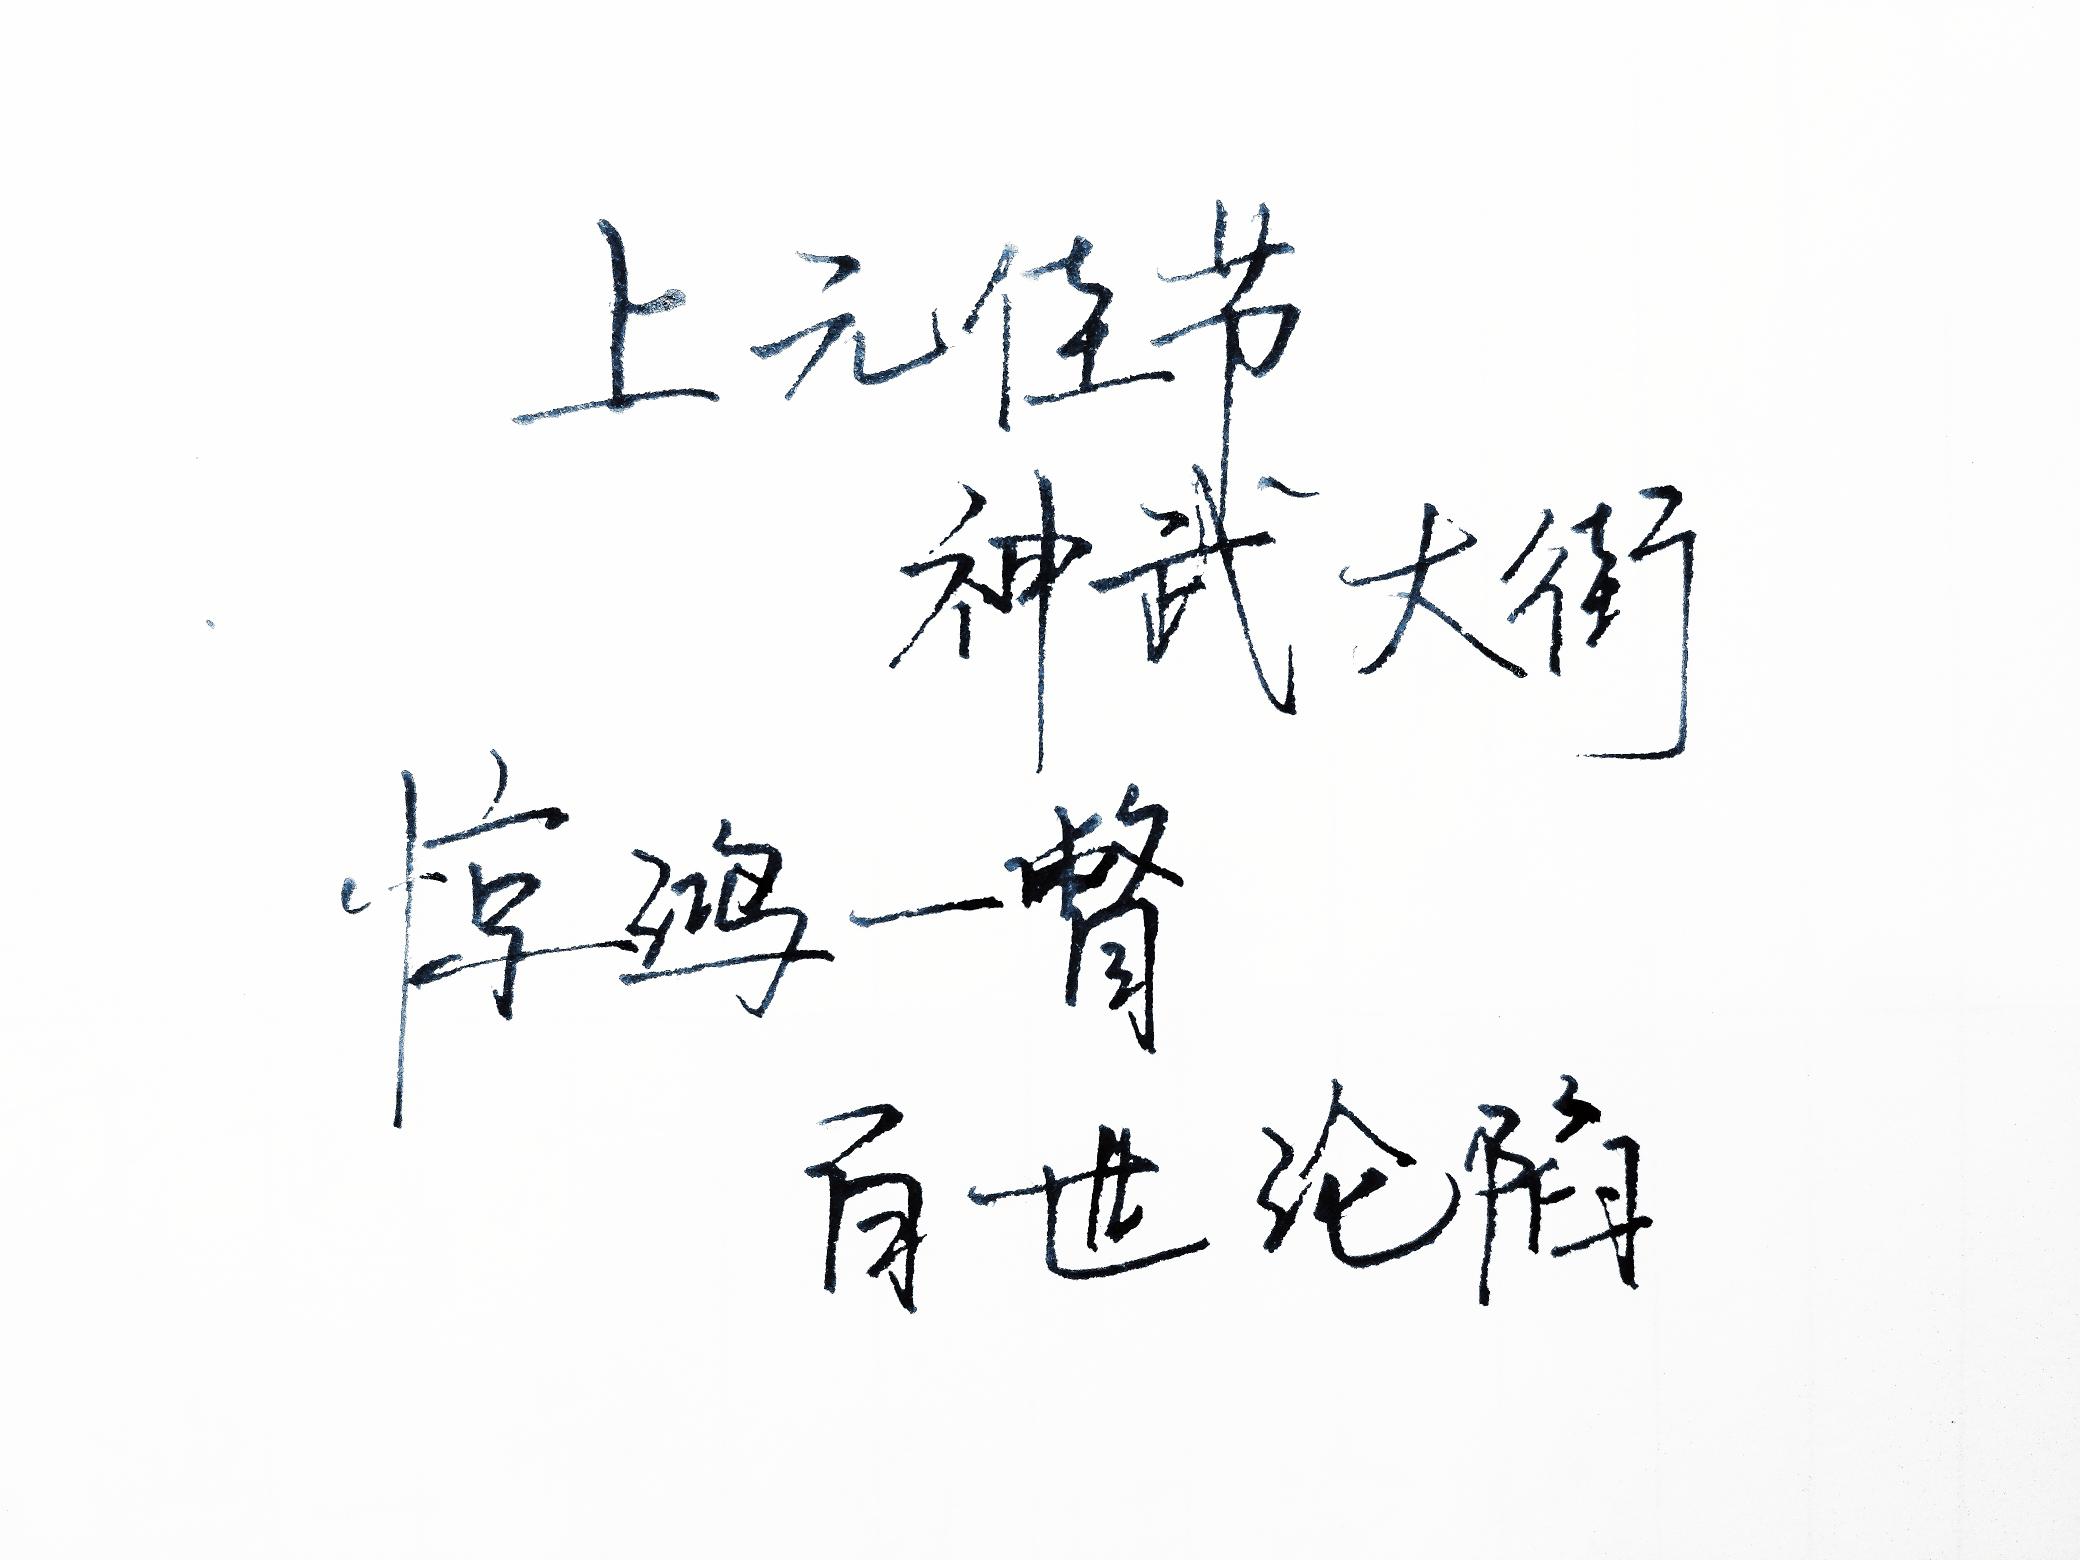 上元佳节
神武大街
惊鸿一瞥
百世沦陷